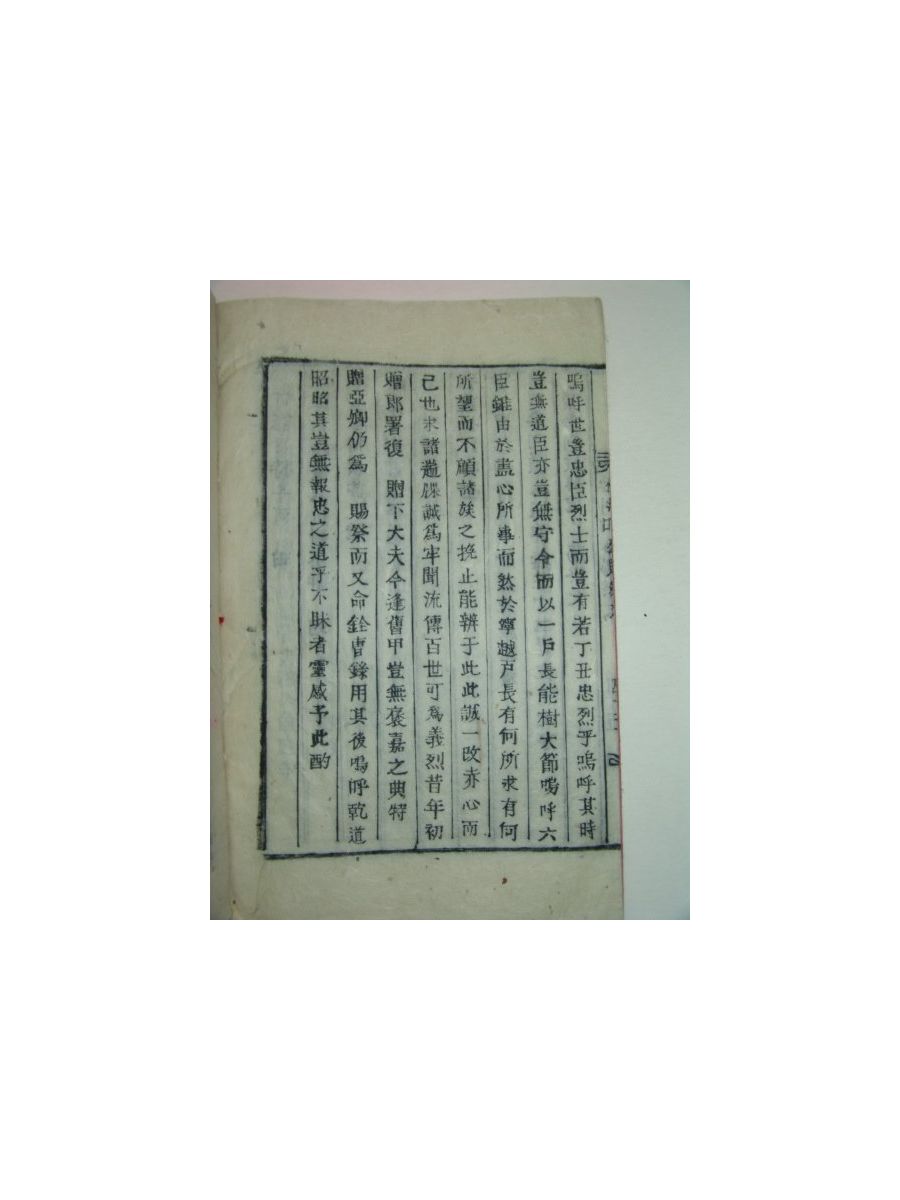 嗚呼世豈忠臣烈士而豈有若丁丑忠烈乎嗚呼其時
豈無道臣亦豈無守令而以一戶長能樹大節嗚呼六
臣雖由於盡心所事而然於寧越戶長有何所求有何
所望而不顧諸族之挽止能辨于此此誠一改赤心而
已也求諸遡牒誠爲牢聞流傳百世可爲義烈昔年初
贈郎署復 贈下大夫今逢舊甲豈無褒嘉之典特
贈亞卿仍爲 賜祭而又命銓曹錄用其後嗚呼乾道
昭昭其豈無報忠之道乎不昧者靈感予此酌